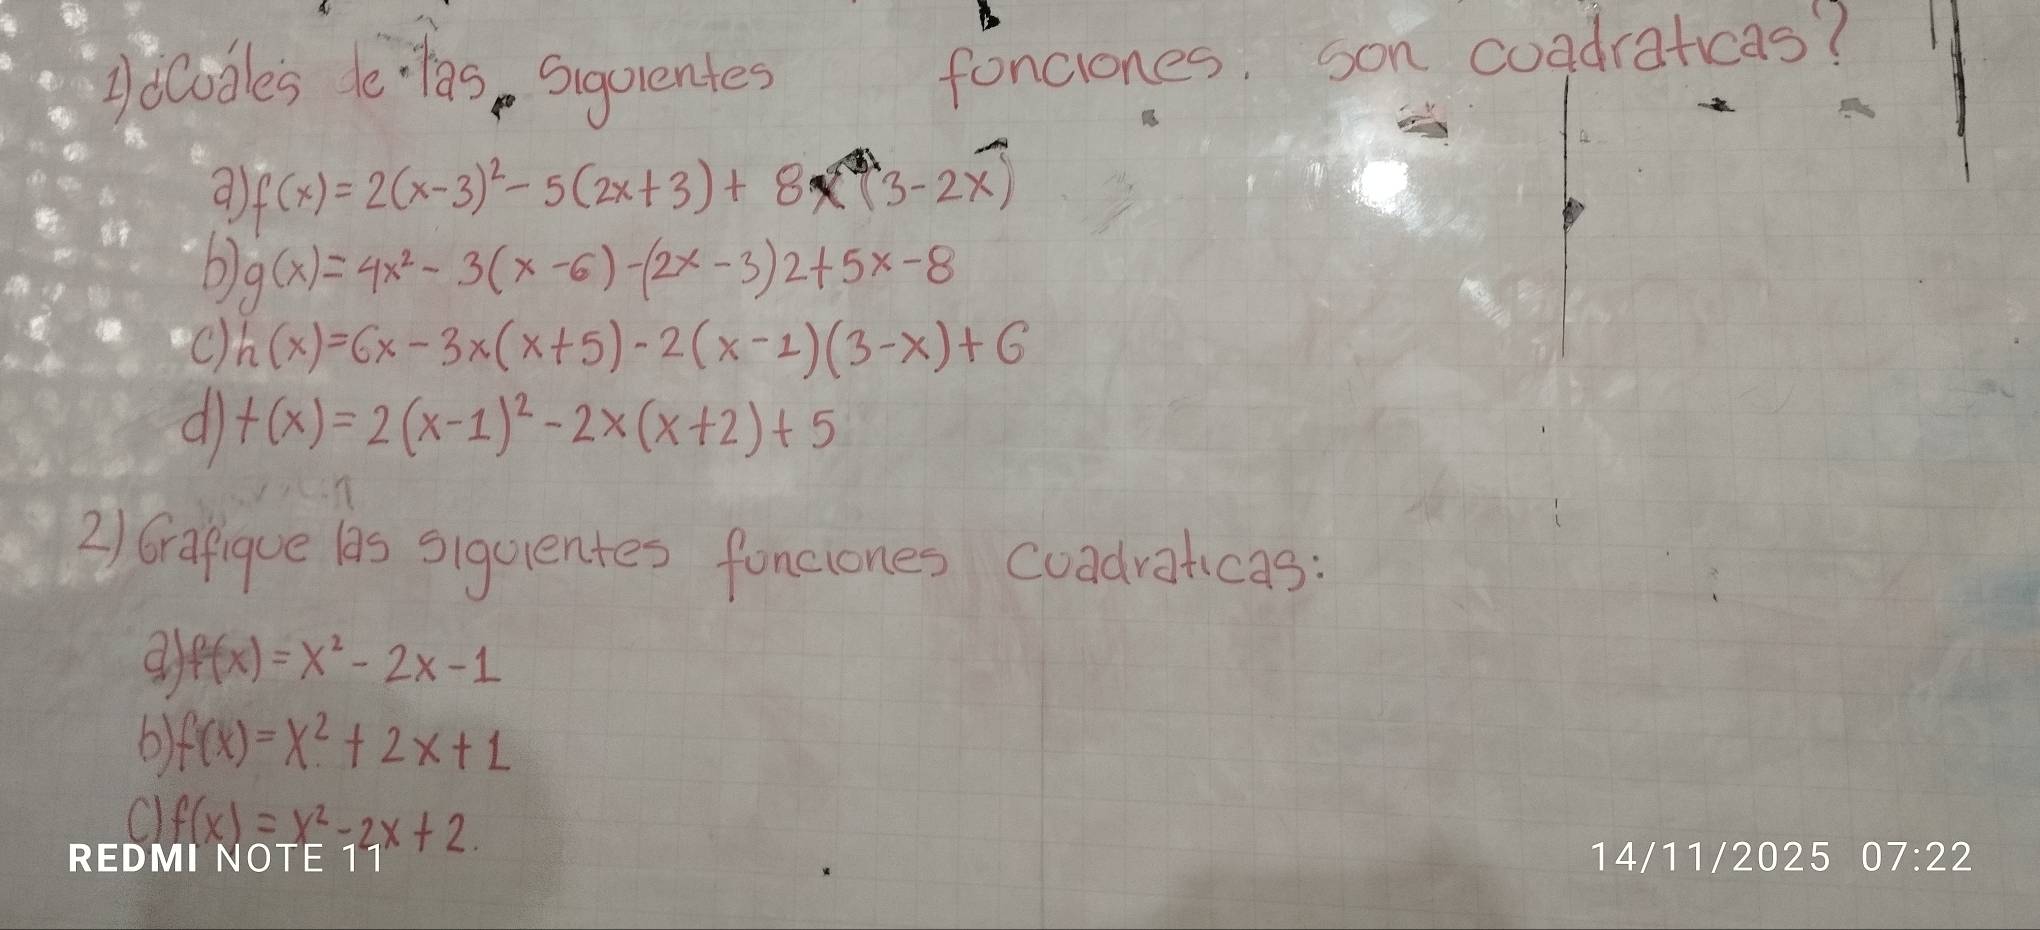 1) ¿Cuáles de las siguientes funciones. son cuadraticas?
a) f(x) = 2(x-3)² - 5(2x+3) + 8x(3-2x)
b) g(x) = 4x² - 3(x-6) - (2x-3)2 + 5x - 8
c) h(x) = 6x - 3x(x+5) - 2(x-1)(3-x) + 6
d) t(x) = 2(x-1)² - 2x(x+2) + 5
2) Grafique las siguientes funciones cuadraticas:
a) f(x) = x² - 2x - 1
b) f(x) = x² + 2x + 1
c) f(x) = x² - 2x + 2.
REDMI NOTE 11 14/11/2025 07:22